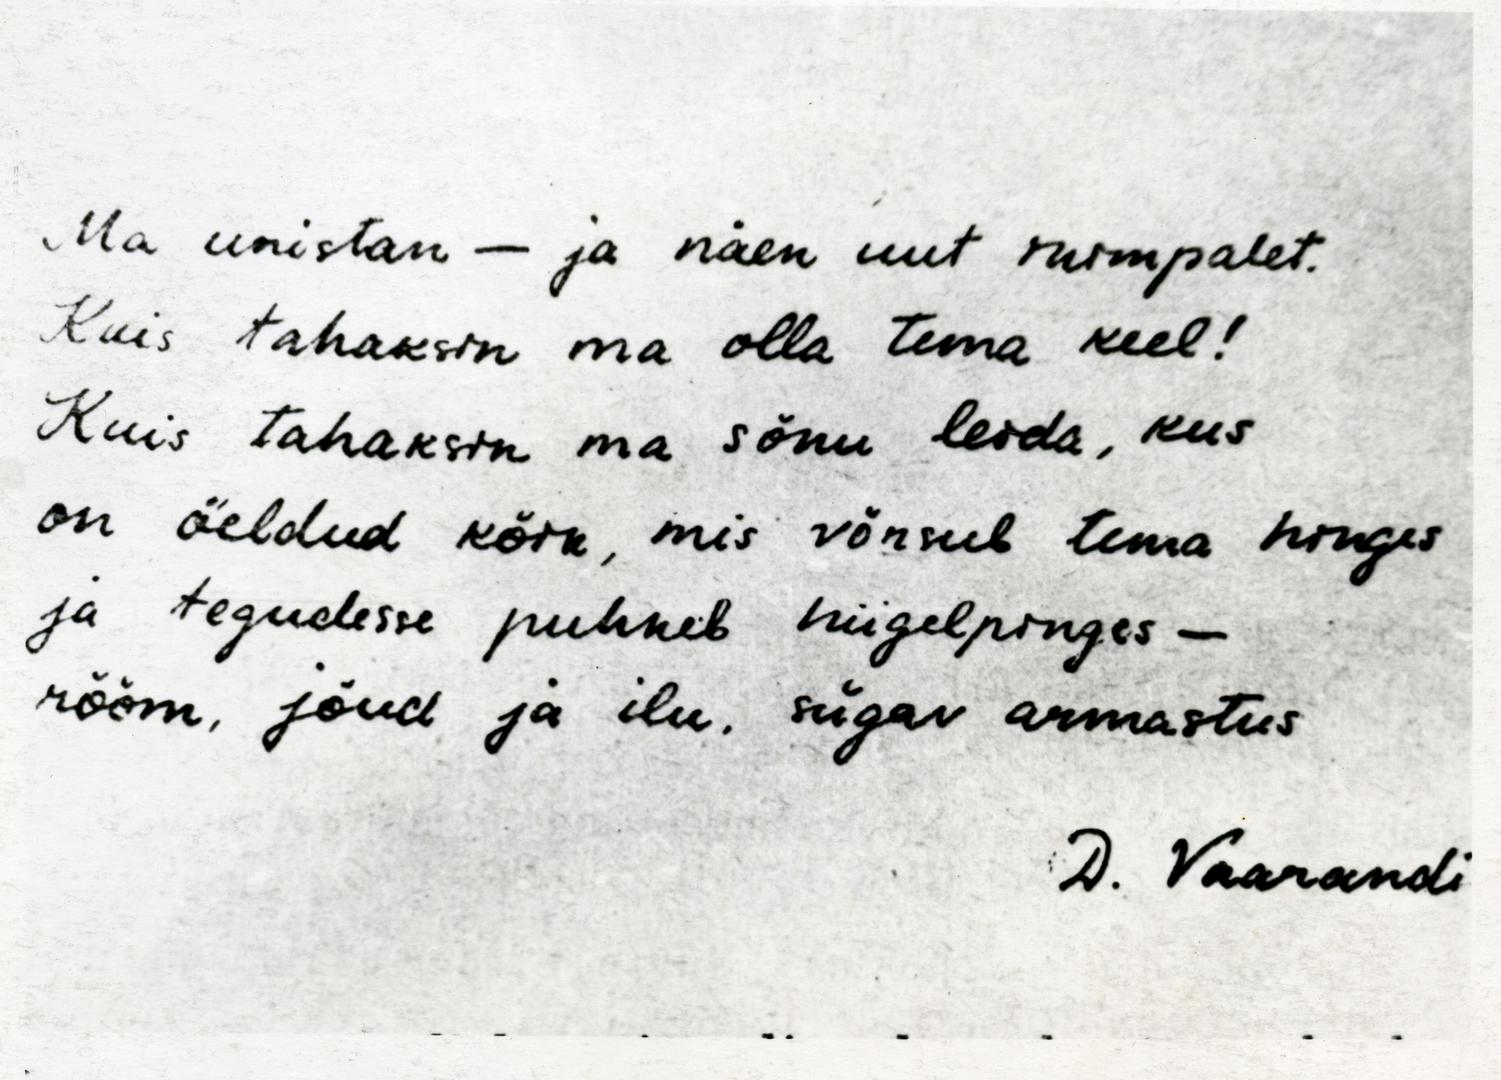 Ma unistan — ja näen uut inimpalet.
Kuis tahaksin ma olla tema keel!
Kuis tahaksin ma sõnu leida, kus
on öeldud kõik, mis võrsub tema hinges
ja tegudesse puhkeb hiigelpinges —
rõõm, jõud ja ilu, sügav armastus
D. Vaarandi